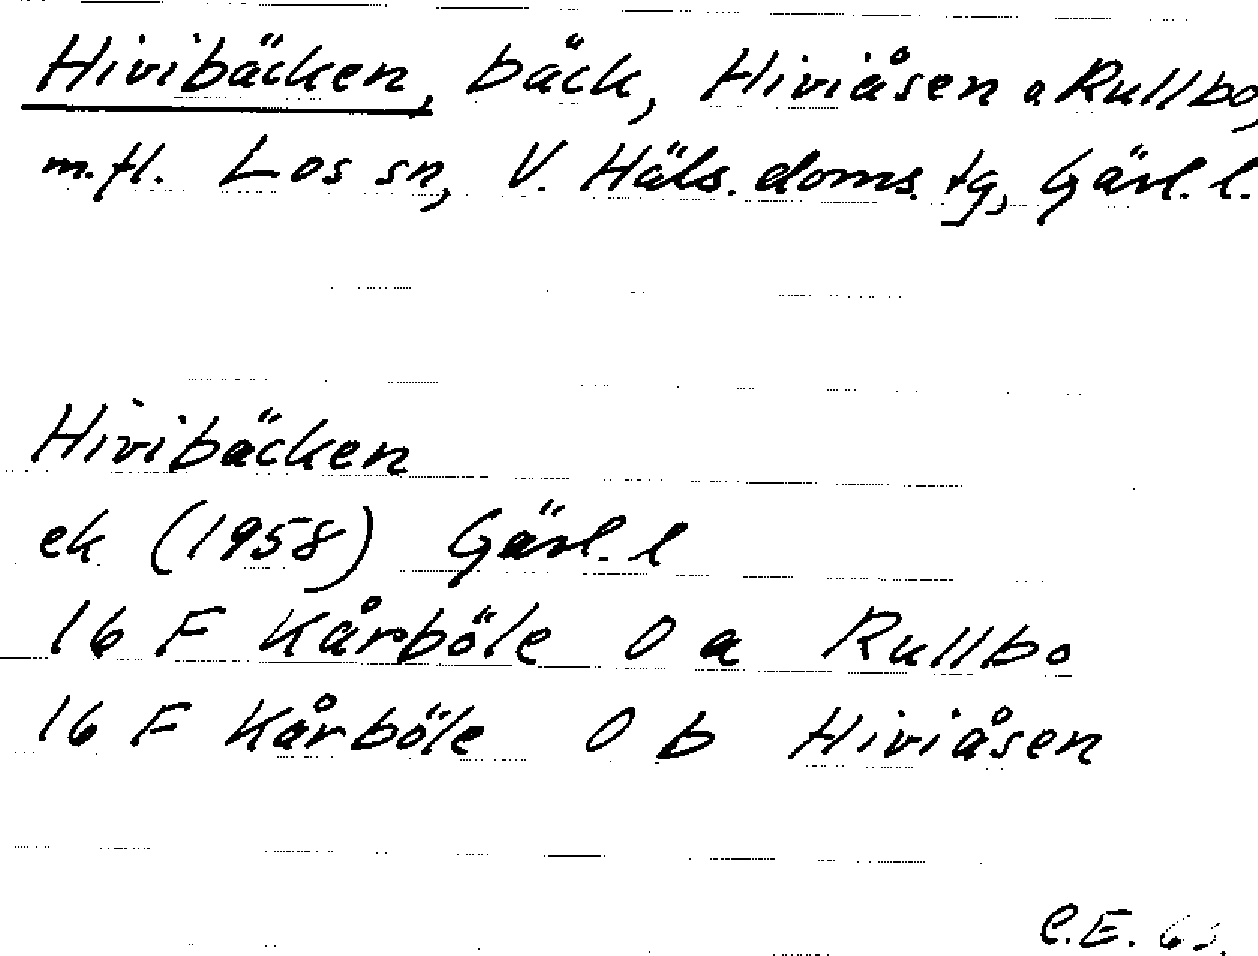 Hivibäcken, bäck, Hiviåsen o Rullbo,
m.fl. Los sn, V. Häls. doms. tg, Gävl. l.
Hivibäcken
ek (1958) Gävl. l
16 F Kårböle 0 a Rullbo
16 F Kårböle 0 b Hiviåsen
C.E.